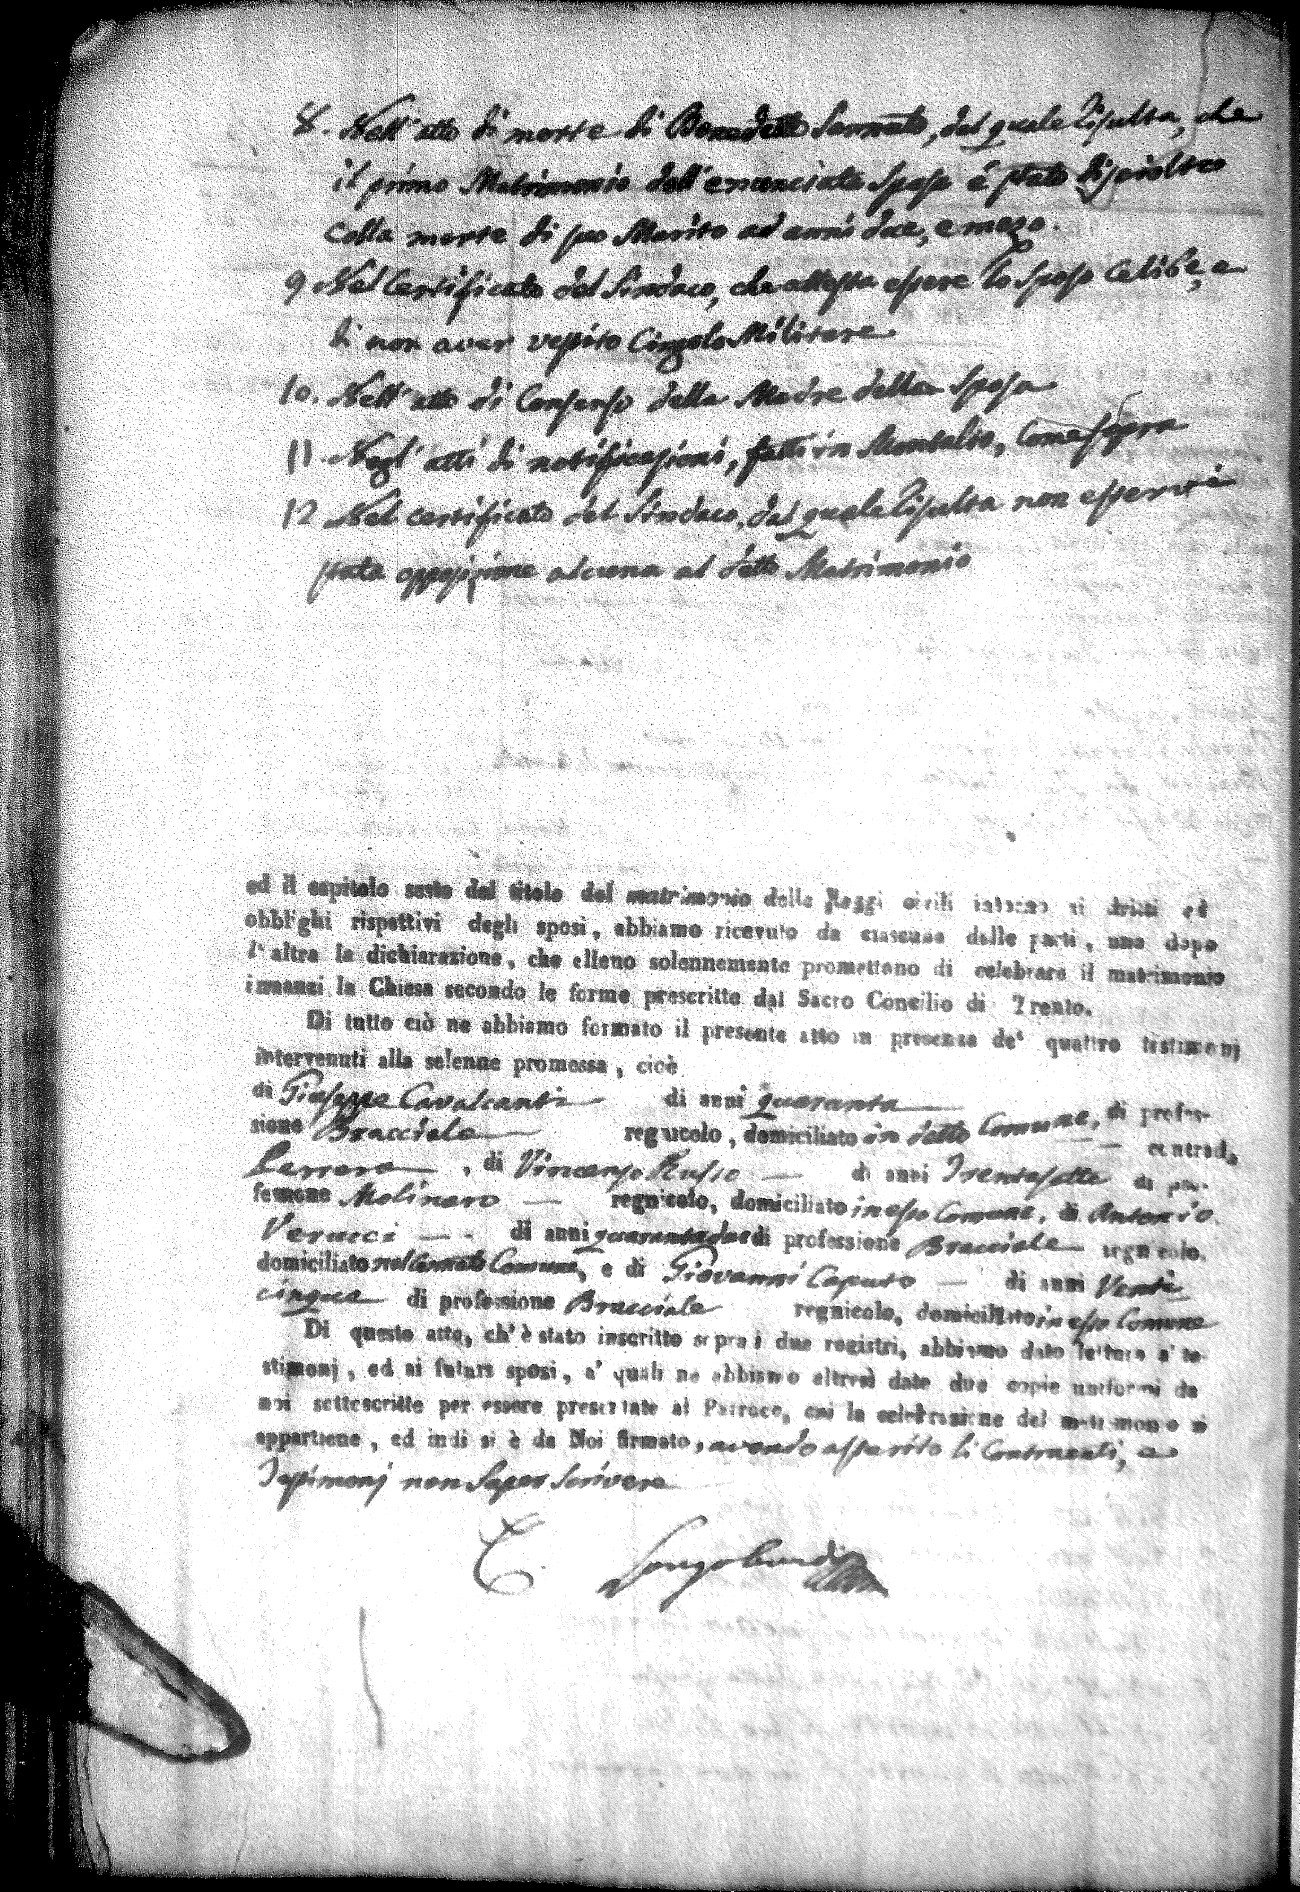 8. Nell'atto di morte di Benedetto Sannuto, dal quale risulta, che
il primo Matrimonio dell'enunciata Sposa è stato disciolto
colla morte di suo Marito ad anni due, e mezo.
9 Nel Certificato del Sindaco, che attesta essere lo Sposo Celibe, e
di non aver vestito Cingolo Militare
10. Nell'atto di Consenso della Madre della Sposa
11. Negl'atti di notificazioni, fatti in Montalto, come sopra
12 Nel certificato del Sindaco, dal quale risulta non esservi
stata opposizione alcuna al detto Matrimonio
ed il capitolo sesto del titolo del matrimonio delle Leggi civili intorno ai dritti ed
obblighi rispettivi degli sposi, abbiamo ricevuto da ciascuna delle parti, una dopo
l'altra la dichiarazione, che elleno solennemente promettono di celebrare il matrimonio
innanzi la Chiesa secondo le forme prescritte dal Sacro Concilio di Trento.
Di tutto ciò ne abbiamo formato il presente atto in presenza de' quattro testimonj
intervenuti alla solenne promessa, cioè
di Giuseppe Cavalcanti di anni quaranta di profes-
sione Bracciale regnicolo, domiciliato in detto Comune, contrada
Perrera, di Vincenzo Russo di anni Trentasette di pro-
fessione Molinaro regnicolo, domiciliato in esso Comune, di Antonio
Veraci di anni quarantadue di professione Bracciale regnicolo,
domiciliato nel Comune, e di Giovanni Caputo di anni Venti
cinque di professione Bracciale regnicolo, domiciliato in esso Comune
Di questo atto, ch'è stato inscritto sopra i due registri, abbiamo dato lettura a' te-
stimonj, ed ai futuri sposi, a' quali ne abbiamo altresì date due copie uniformi da
noi sottoscritte per essere presentate al Parroco, cui la celebrazione del matrimonio si
appartiene, ed indi si è da Noi firmato, avendo asserito li Contraenti, e
Testimonj non saper Scrivere
C. Longobardi